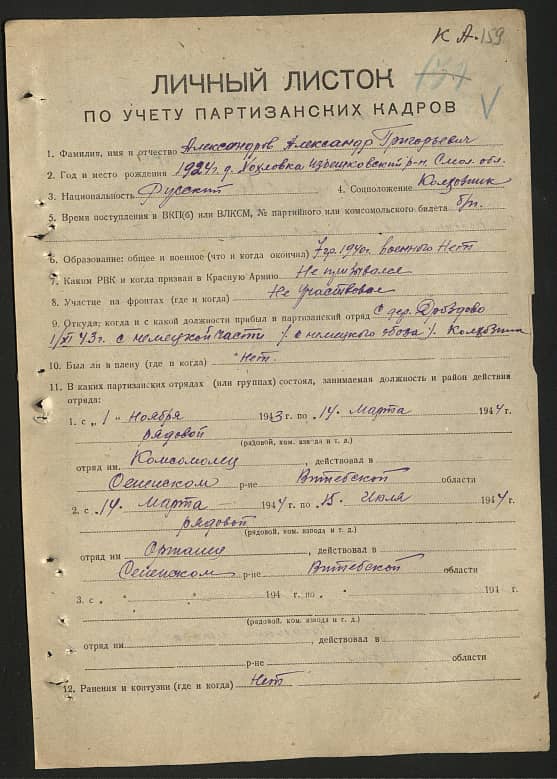 К А. 159
137
ЛИЧНЫЙ ЛИСТОК
ПО УЧЕТУ ПАРТИЗАНСКИХ КАДРОВ
1. Фамилия, имя и отчество Александров Александр Григорьевич
2. Год и место рождения 1924 г. д. Козловка Издешковский р-н, Смол. обл.
3. Национальность Русский 4. Соцположение Колхозник
5. Время поступления в ВКП(б) или ВЛКСМ, № партийного или комсомольского билета б/п.
6. Образование: общее и военное (что и когда окончил) 7 гр. 1940г. военного Нет
7. Каким РВК и когда призван в Красную Армию Не призывался
8. Участие на фронтах (где и когда) Не участвовал
9. Откуда, когда и с какой должности прибыл в партизанский отряд С дер.
1/XI 43г. с немецкой части /с немецкого обоза/. Колхозник
10. Был ли в плену (где и когда) Нет.
11. В каких партизанских отрядах (или группах) состоял, занимаемая должность и район действия
отряда:
1. с „1" Ноября 1943 г. по 14. Марта 1944 г.
рядовой
(рядовой, ком. взвода и т. д.)
отряд им. Комсомолец, действовал в
Сененском р-не Витебской области
2. с „14. Марта 1944 г. по 15. Июля 1944 г.
рядовой
(рядовой, ком. взвода и т. д.)
отряд им , действовал в
Сененском р-не Витебской области
3. с „ " 194 г. по " 194 г.
(рядовой, ком. взвода и т. д.)
отряд им. , действовал в
р-не области
12. Ранения и контузии (где и когда) Нет